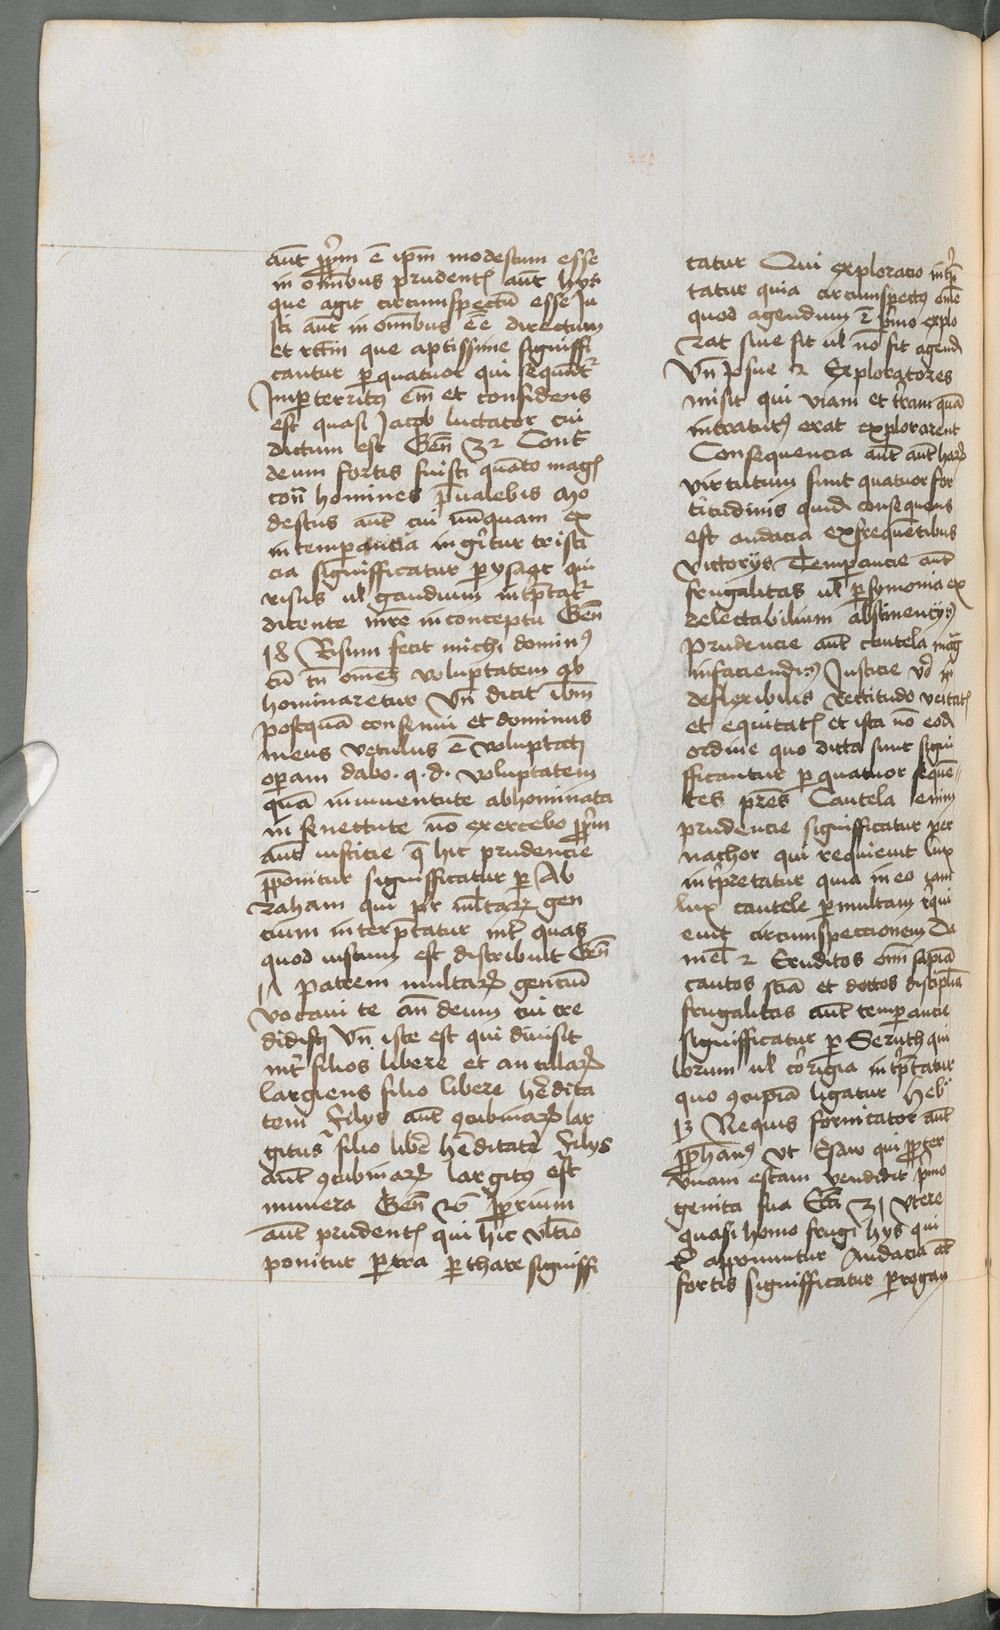 aut͂ ꝓpriu͂ e͂ ip͂m modestum esse
in om͂ibus prudent͂ aut͂ hys
que agit circumspectu͂ esse Iu
sti aut͂ in om͂ibus ee͂ directum
et rc͂m que aptissime signiffi
cantur ꝑ quatuor qui sequnt͂
Imperterrit⁹ em͂ et confidens
est quasi Jacob luctator cui
dictum est Gen͂ 32 Cont͂
deum fortis fuisti quanto mag͂
con͂ homines p͂ualebis Mo
destus aut͂ cui nu͂quam ex
intemperancia ingerit͂ur tristi
cia signifficatur ꝑ ysaac qui
risus ul͂ gaudium int͂ptat͂
dicente mr͂e in conceptu Gen͂
18 Risum fecit michi domin⁹
cu͂ tn͂ omne͂ voluptatem ab
hominaretur Vn͂ dicit ibm͂
postqua͂ consenui et dominus
meus vetulus e͂ voluptati
oꝑam dabo . q . d . voluptatem
qua͂ in iuuentute abhominata
in senectute no͂ exercebo ꝓpriu͂
aut͂ iusticie q͂ hic prudencie
ꝓponitur signifficatur ꝑ Ab
raham qui pr͂ mltar͂ gen
cium interp͂tatur int͂ quas
quod iustum est distribuit Gen͂
17 patrem multar͂ genciu͂
vocaui te an͂ deum cui cre
didisti Vn͂ iste est qui diuisit
int͂ filios libere et ancillar͂
largiens filio libere he͂dita
tem filys aut͂ ꝯcubinar͂ lar
gitus filio libe͂ he͂ditate͂ filys
aut͂ ꝯcubinar͂ largit⁹ est
munera Gen͂ 25 ꝓprium
aut͂ prudent͂ qui hic vlt͂io
ponitur ꝑ tra ꝑ thare signiffi
tatur Qui exploracio int͂p
tatur quia circumspect⁹ om͂e
quod agendum e͂ p͂mo explo
rat siue sit ul͂ no͂ sit agend͂
Vn͂ Josue 2 Exploratores
misit qui viam et t͂ram qua͂
intratur⁹ erat explorarent
Consequencia aut͂ aut͂ har͂
virtutum sunt quatuor for
titudinis quid͂ consequens
est audacia ex frequentibus
victorijs Temperancie aut͂
frugalitas ul͂ parsymonia ex
delectabilium abstinencijs
Prudencie aut͂ cautela mag͂
in faciendis Justicie v͂o in
deflexibilis rectitudo veritat͂
et equitat͂ et ista no͂ eod͂
ordine quo dicta sunt signi
fficantur ꝑ quatuor seque͂
tes pr͂es Cautela enim
prudencie signifficatur per
nachor qui requieuit lux
int͂pretatur quia in eo tam͂
lux cautele ꝑ multam r͂qui
euit circumspeccionem Da
niel͂ 2 Eruditos om͂i sapia͂
cautos scia͂ et doctos disciplia͂
frugalitas aut͂ temperancie
signifficatur ꝑ Seruch qui
lorum ul͂ corrigia int͂ptatur
quo ꝯcupia͂ ligatur Heb͂
13 Ne quis fornicator aut͂
ꝓphan⁹ vt Esau qui ꝓpter
vnam escam vendidit p͂mo
genita sua Ecci͂ 31 vtere
quasi homo frugi hys qui
t͂ apponuntur Audacia at͂
fortis signifficatur ꝑ ragau